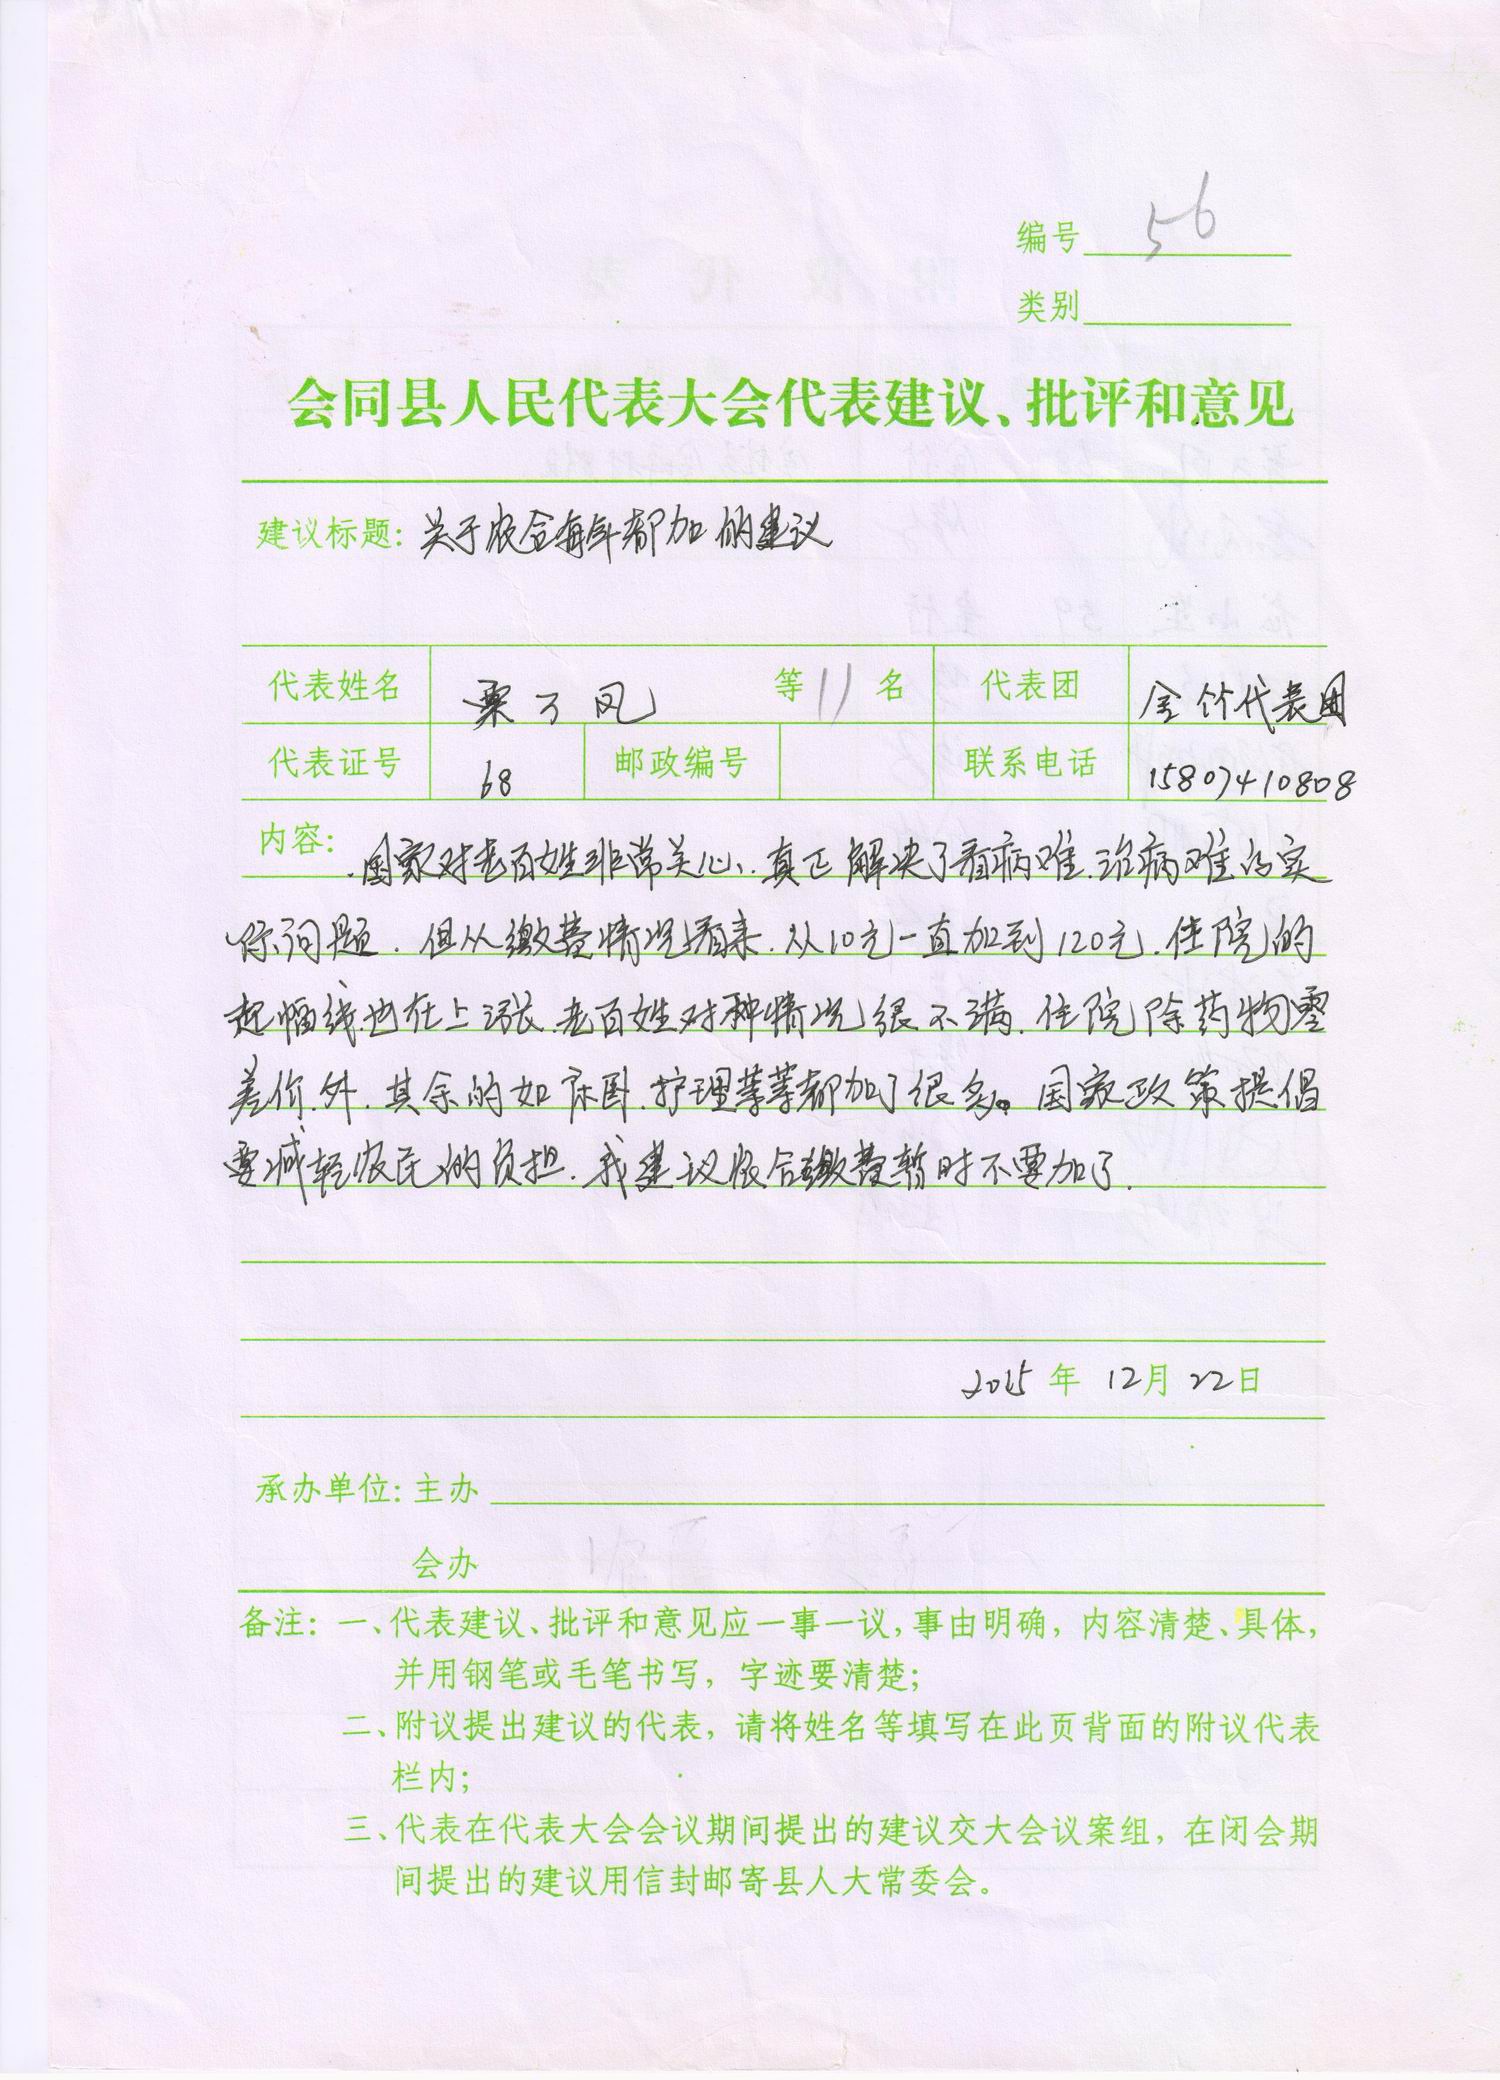 编号 56
类别
会同县人民代表大会代表建议、批评和意见
建议标题: 关于农合每年都加的建议
代表姓名 粟了凤 等11名 代表团 金竹代表团
代表证号 68 邮政编号 联系电话 15807410808
内容: 国家对老百姓非常关心、真正解决了看病难.治病难的实
际问题. 但从缴费情况看来.从10元一直加到120元.住院的
起幅线也在上涨.老百姓对种情况很不满.住院除药物零
差价外.其余的如床卧.护理等等都加了很多。国家政策提倡
要减轻农民的负担.我建议农合缴费暂时不要加了.
2015年 12月 22日
承办单位: 主办
会办
备注: 一、代表建议、批评和意见应一事一议, 事由明确, 内容清楚、具体,
并用钢笔或毛笔书写, 字迹要清楚;
二、附议提出建议的代表, 请将姓名等填写在此页背面的附议代表
栏内;
三、代表在代表大会会议期间提出的建议交大会议案组, 在闭会期
间提出的建议用信封邮寄县人大常委会。